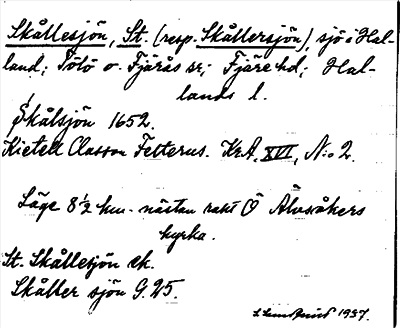 Skållesjön, St. (resp. Skållersjön), sjö i Hal-
land; Tölö o. Fjärås sr; Fjäre hd; Hal-
lands l.
Skålsjön 1652.
Kietell Classon Fetterus. KrA, XVI, N:o 2.
Läge 8½ km. nästan rakt Ö Älvsåkers
kyrka.
St. Skållesjön ek.
Skåller sjön G. 25.
1937.